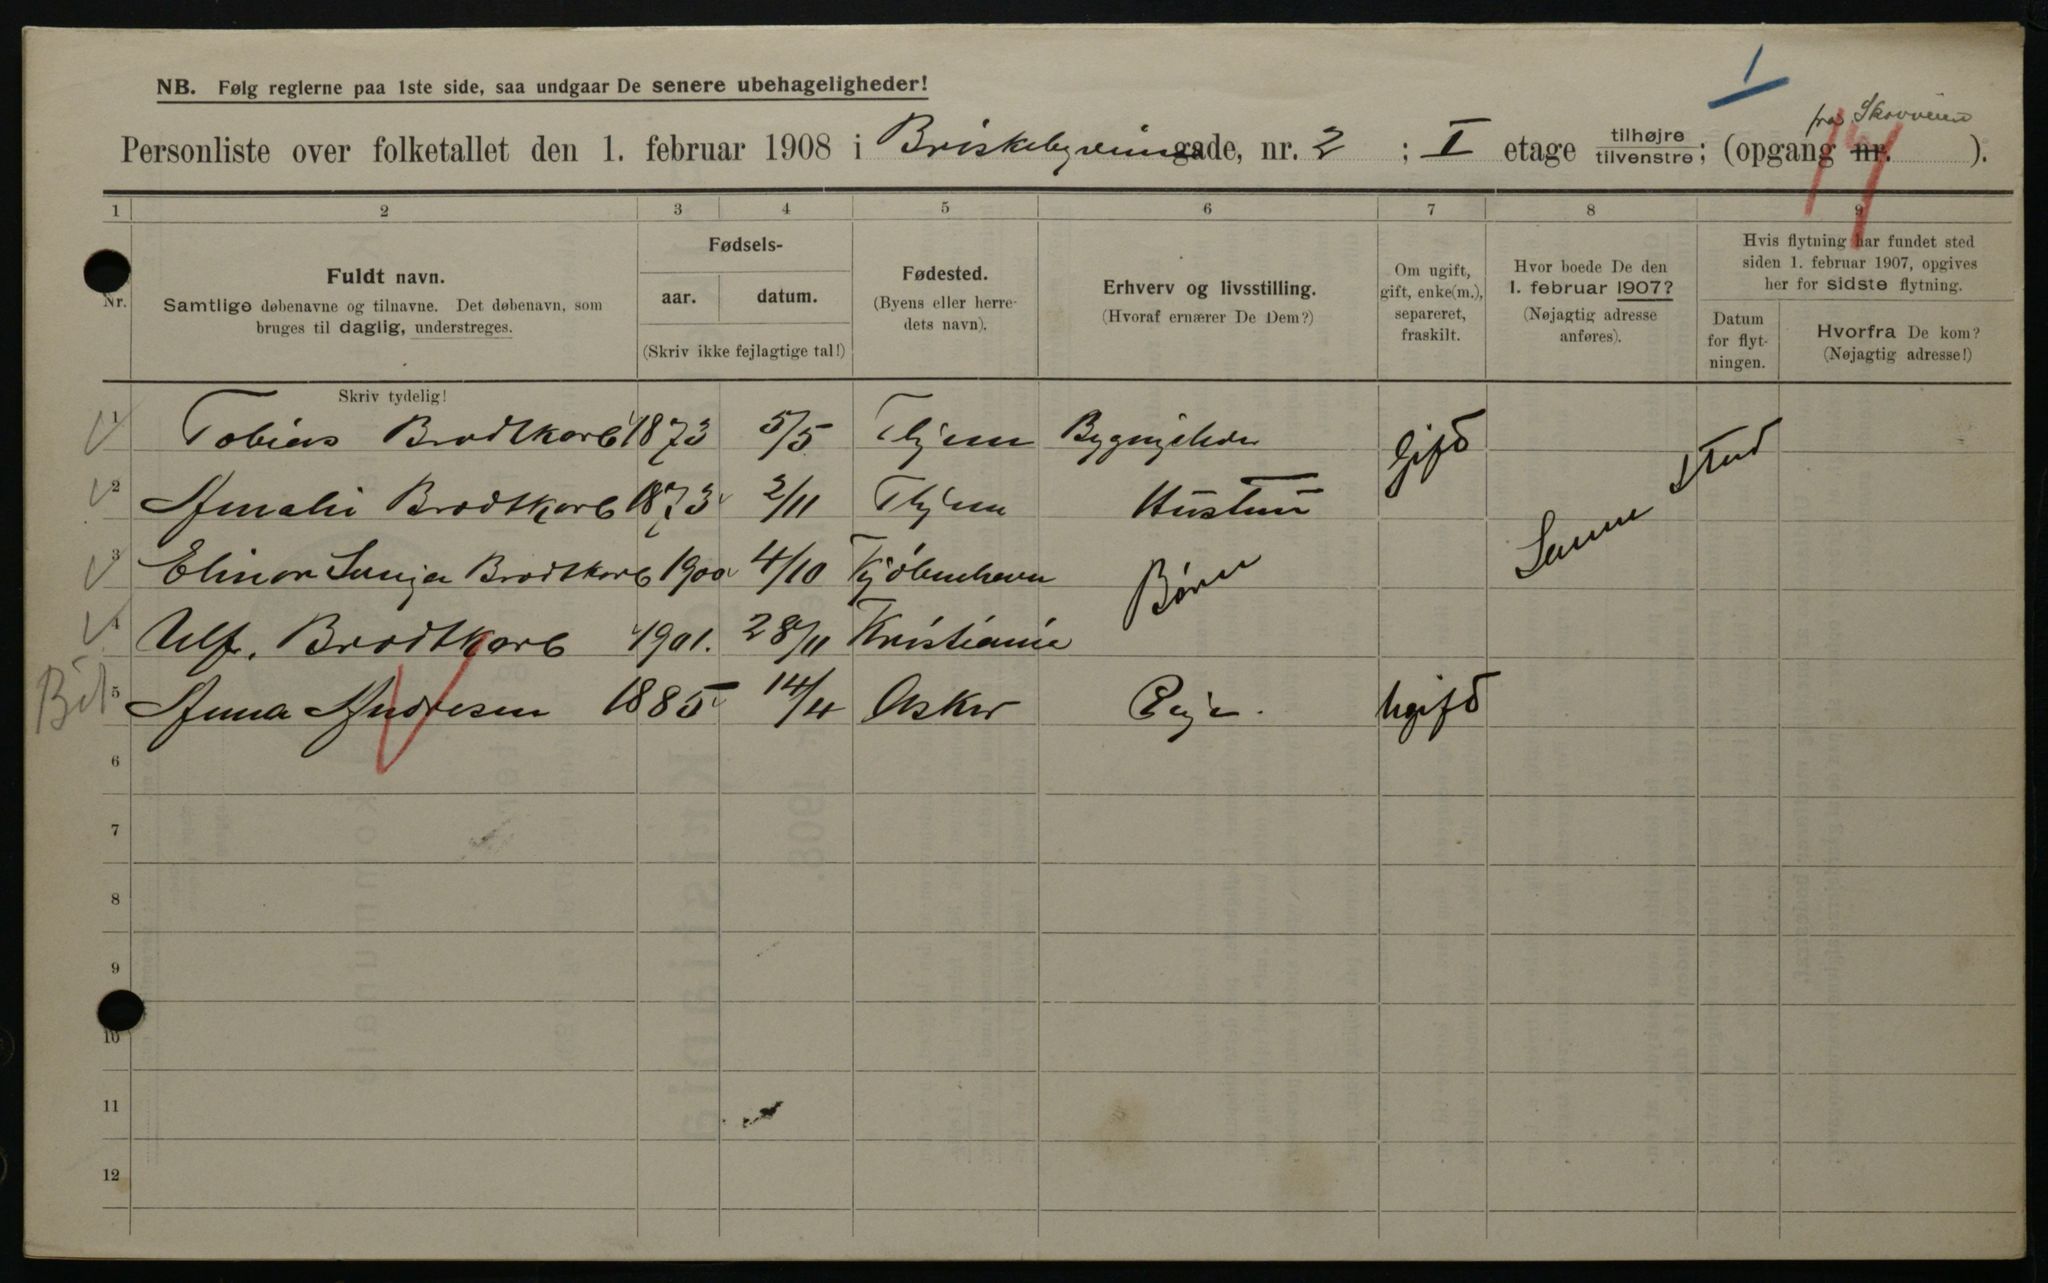 NB. Følg reglerne paa 1ste side, saa undgaar De senere ubehageligheder!
1
fra Skovveien
Personliste over folketallet den 1. februar 1908 i Briskebyveien gade, nr. 2 ; I etage tilhøjre tilvenstre; (opgang nr. ).
1 2 3 4 5 6 7 8 9
Nr.
Fuldt navn.
Samtlige døbenavne og tilnavne. Det døbenavn, som
bruges til daglig, understreges.
Fødsels-
aar. datum.
(Skriv ikke fejlagtige tal!)
Fødested.
(Byens eller herre-
dets navn).
Erhverv og livsstilling.
(Hvoraf ernærer De Dem?)
Om ugift,
gift, enke(m.),
separeret,
fraskilt.
Hvor boede De den
1. februar 1907?
(Nøjagtig adresse
anføres).
Hvis flytning har fundet sted
siden 1. februar 1907, opgives
her for sidste flytning.
Datum
for flyt-
ningen.
Hvorfra De kom?
(Nøjagtig adresse!)
Skriv tydelig!
1 Tobias Brodtkorb 1873 5/5 Gift
2 Amalie Brodtkorb 1873 2/11 Hustru Samme Sted
3 Elinor Brodtkorb 1900 4/10 Kjøbenhavn Børn
4 Ulf. Brodtkorb 1901. 28/11 Kristiania
5 Anna Andresen 1885 14/4 Asker Pige. Ugift
6
7
8
9
10
11
12